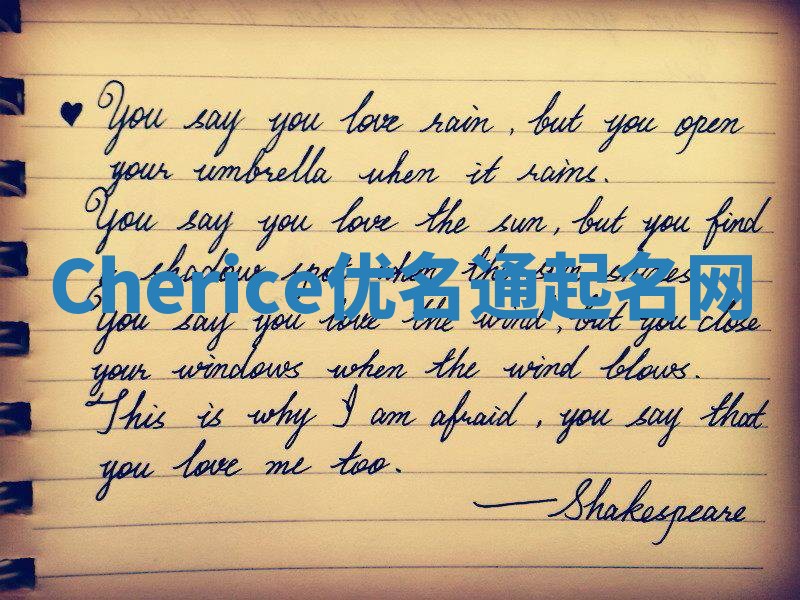 ♥ You say you love rain, but you open
your umbrella when it rains.
You say you love the sun, but you find
a shadow spot when the sun shines.
Cherice优名通起名网
You say you love the wind, but you close
your windows when the wind blows.
This is why I am afraid, you say that
you love me too.
—Shakespeare